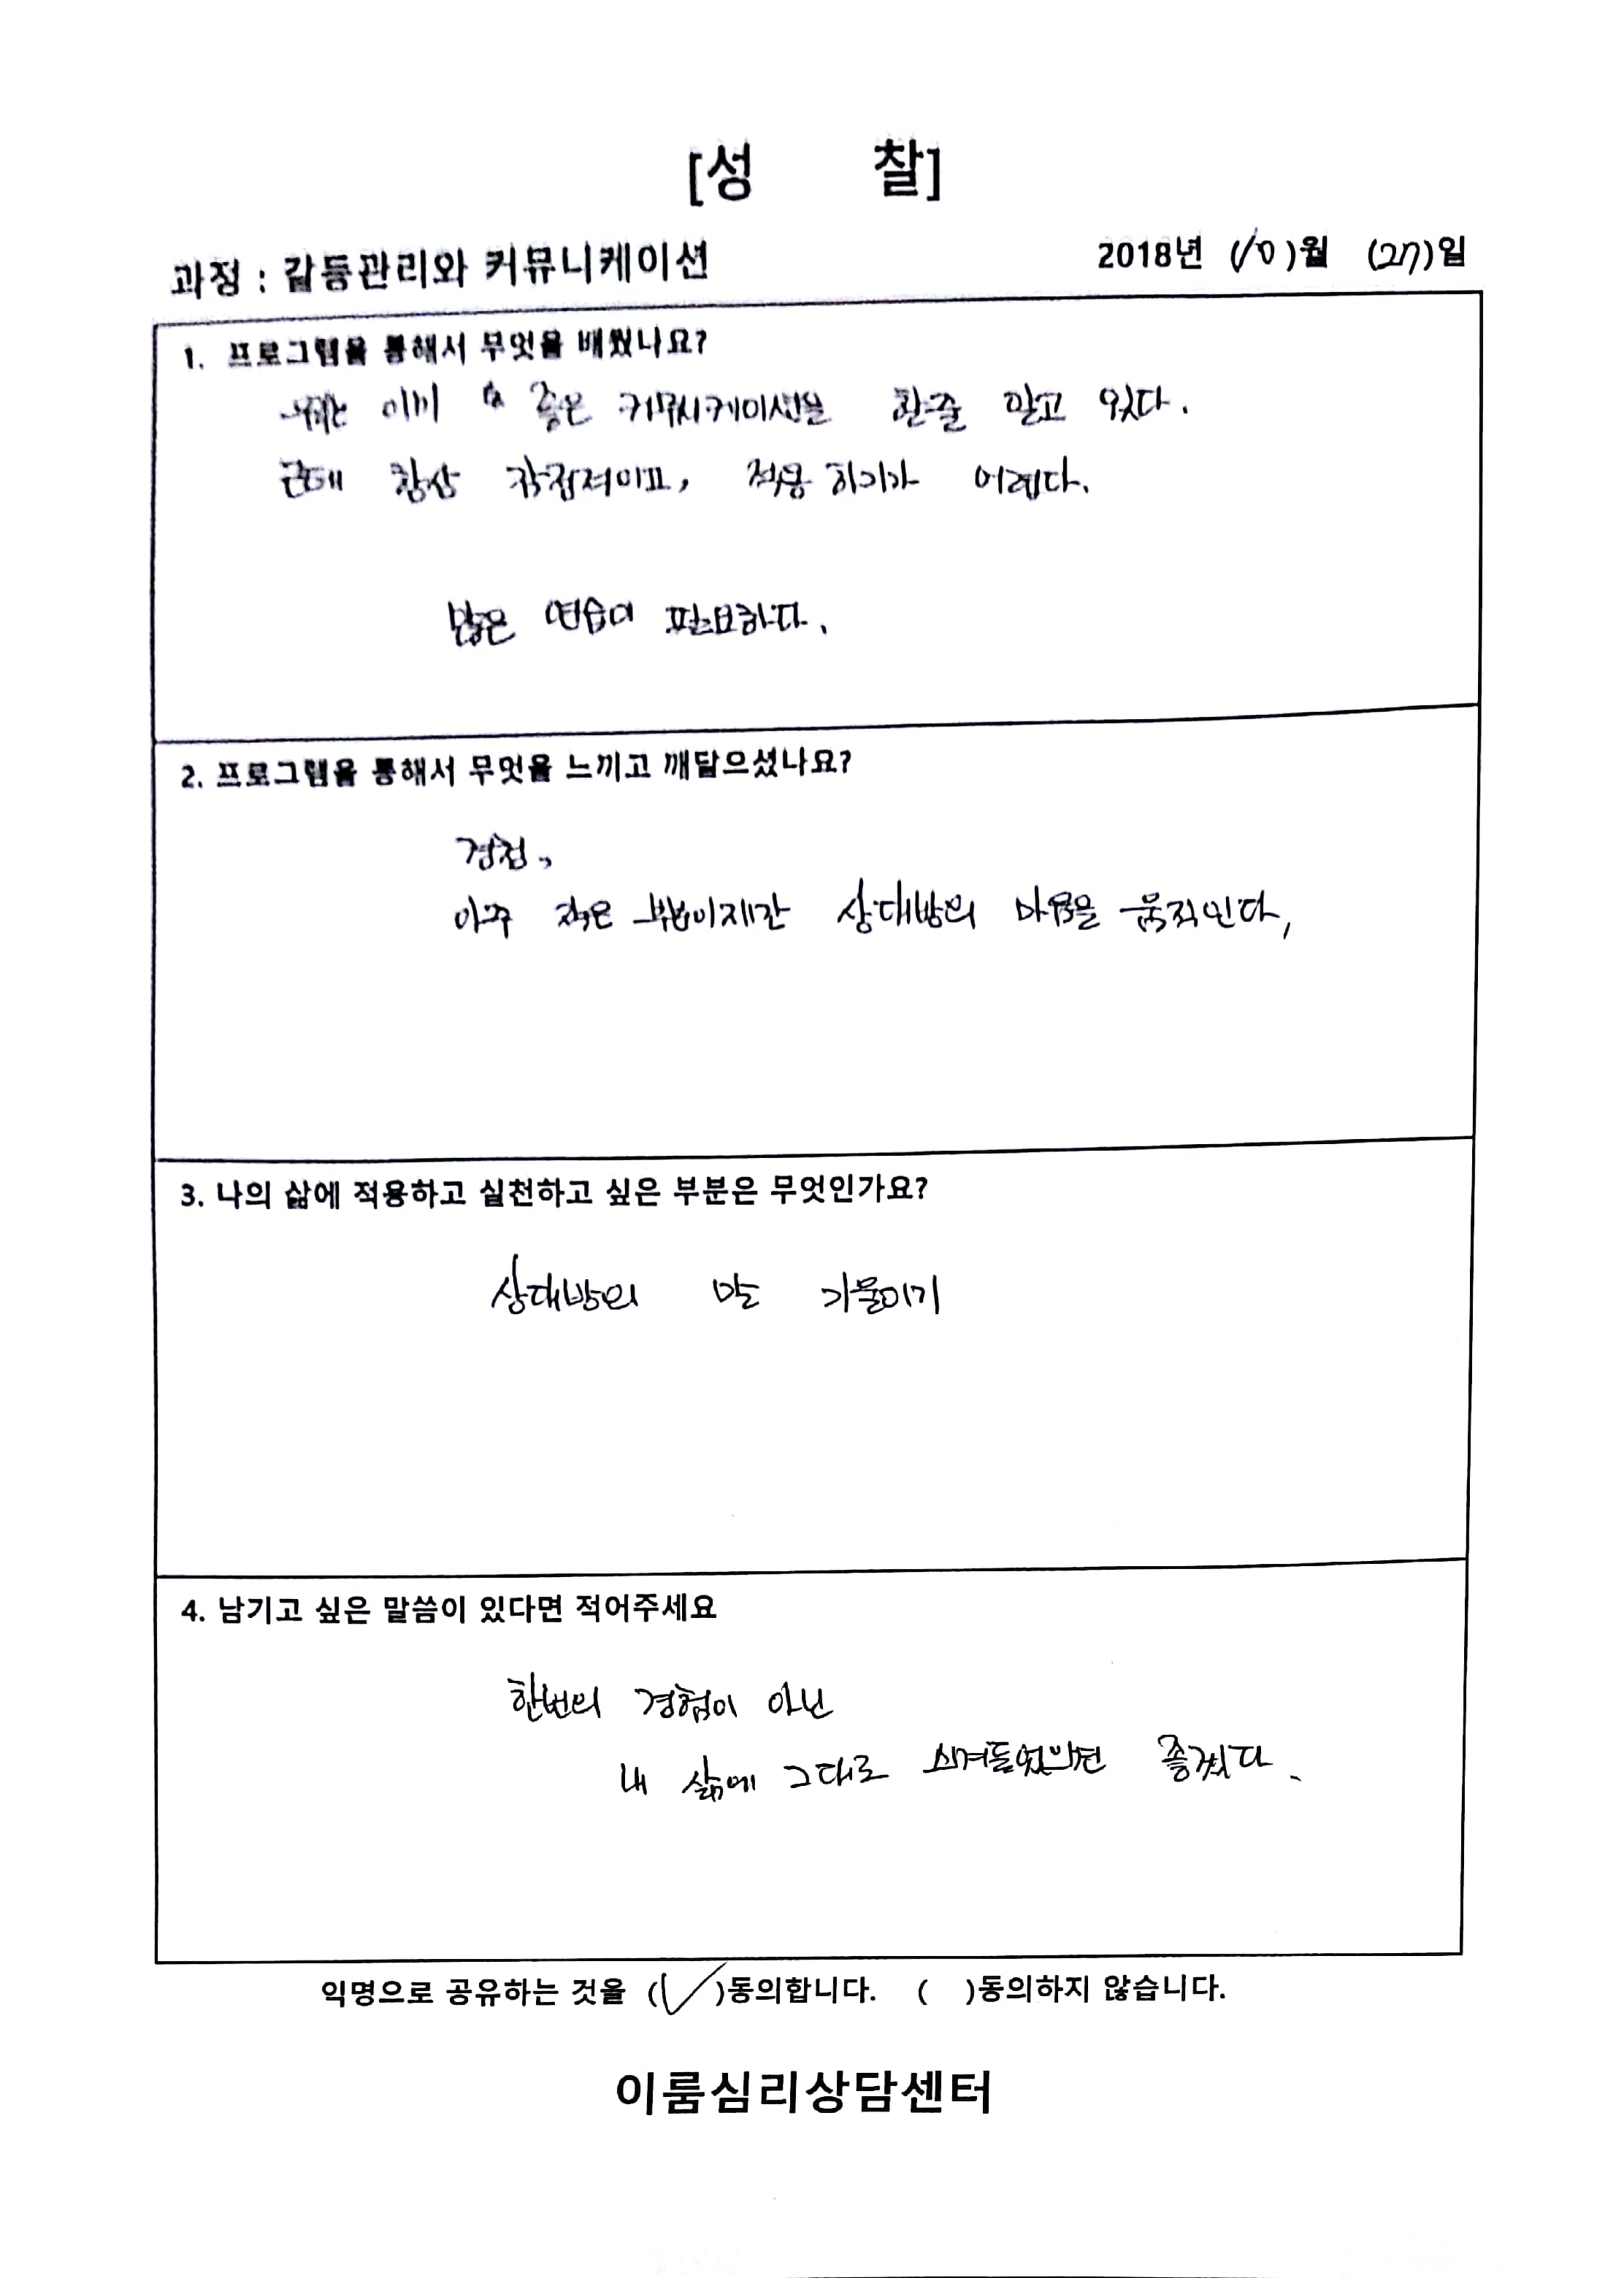 [성 찰]
과정 : 갈등관리와 커뮤니케이션
2018년 (10)월 (27)일
1. 프로그램을 통해서 무엇을 배웠나요?
우리는 이미 좋은 할줄 알고 있다.
근데 항상 어렵다.
많은 연습이 필요하다.
2. 프로그램을 통해서 무엇을 느끼고 깨달으셨나요?
경청,
아주 적은 상대방의 마음을 움직인다,
3. 나의 삶에 적용하고 실천하고 싶은 부분은 무엇인가요?
상대방의 말 기울이기
4. 남기고 싶은 말씀이 있다면 적어주세요
한번의 경험이 아닌
내 삶에 그대로 좋겠다.
익명으로 공유하는 것을 (✓)동의합니다. ( )동의하지 않습니다.
이룸심리상담센터